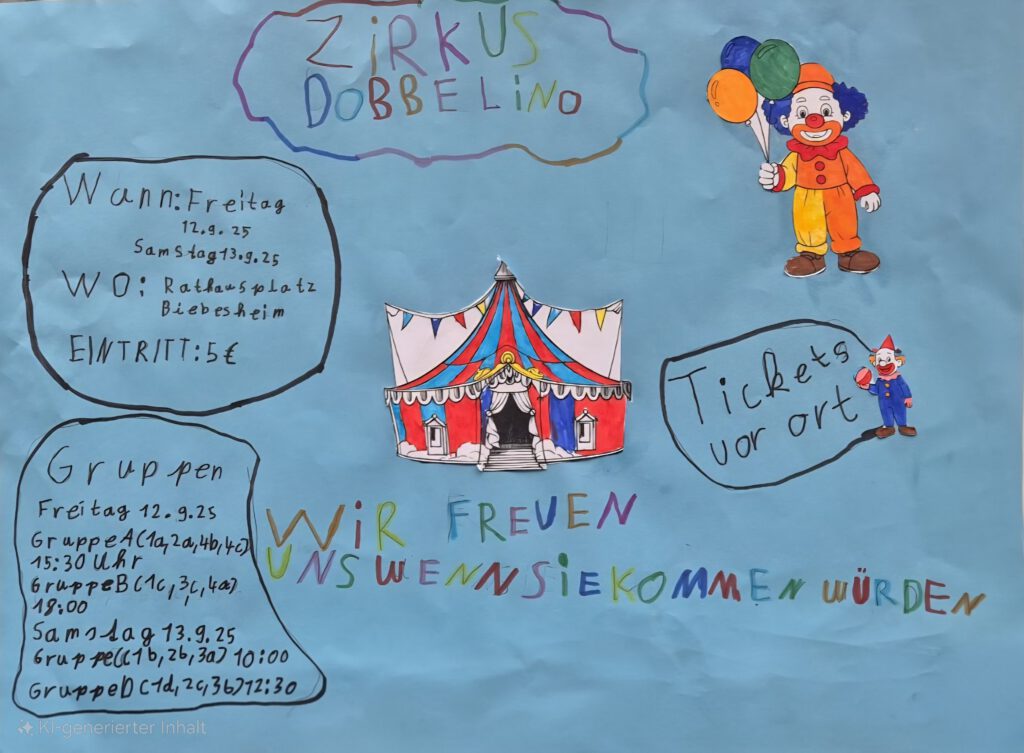 ZiRKUS
DOBBELiNO
Wann: Freitag
12.9.25
Samstag 13.9.25
WO: Rathausplatz
Biebesheim
EINTRITT: 5€
Tickets
vor ort
Gruppen
Freitag 12.9.25
Gruppe A (1a, 2a, 4b, 4c)
15:30 Uhr
Gruppe B (1c, 3c, 4a)
18:00
Samstag 13.9.25
Gruppe C (1b, 2b, 3a) 10:00
Gruppe D (1d, 2c, 3b) 12:30
WiR FREUEN
UNS WENN SiE KOMMEN WÜRDEN
KI-generierter Inhalt